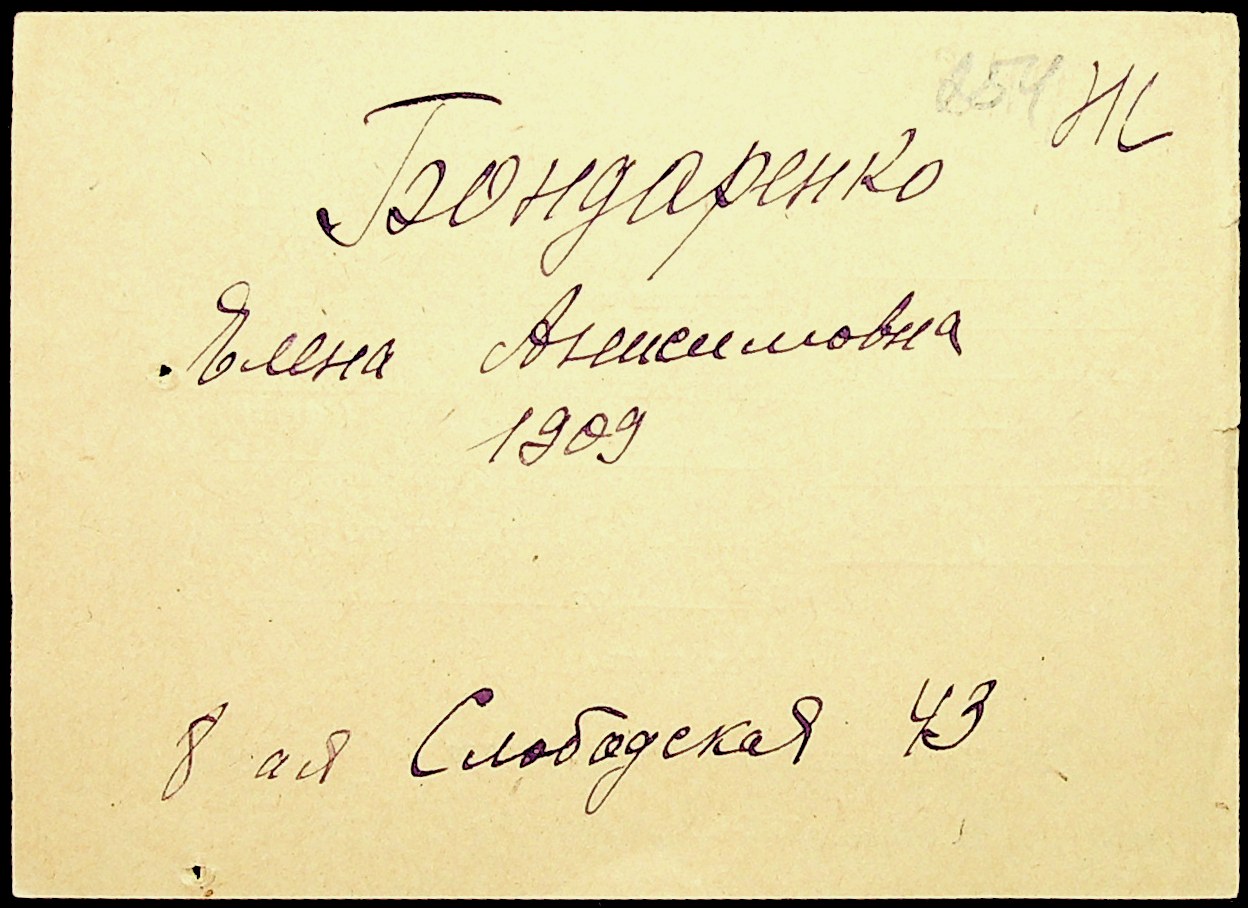 254 Ж
Бондаренко
Елена Анисимовна
1909
8 ая Слободская 43